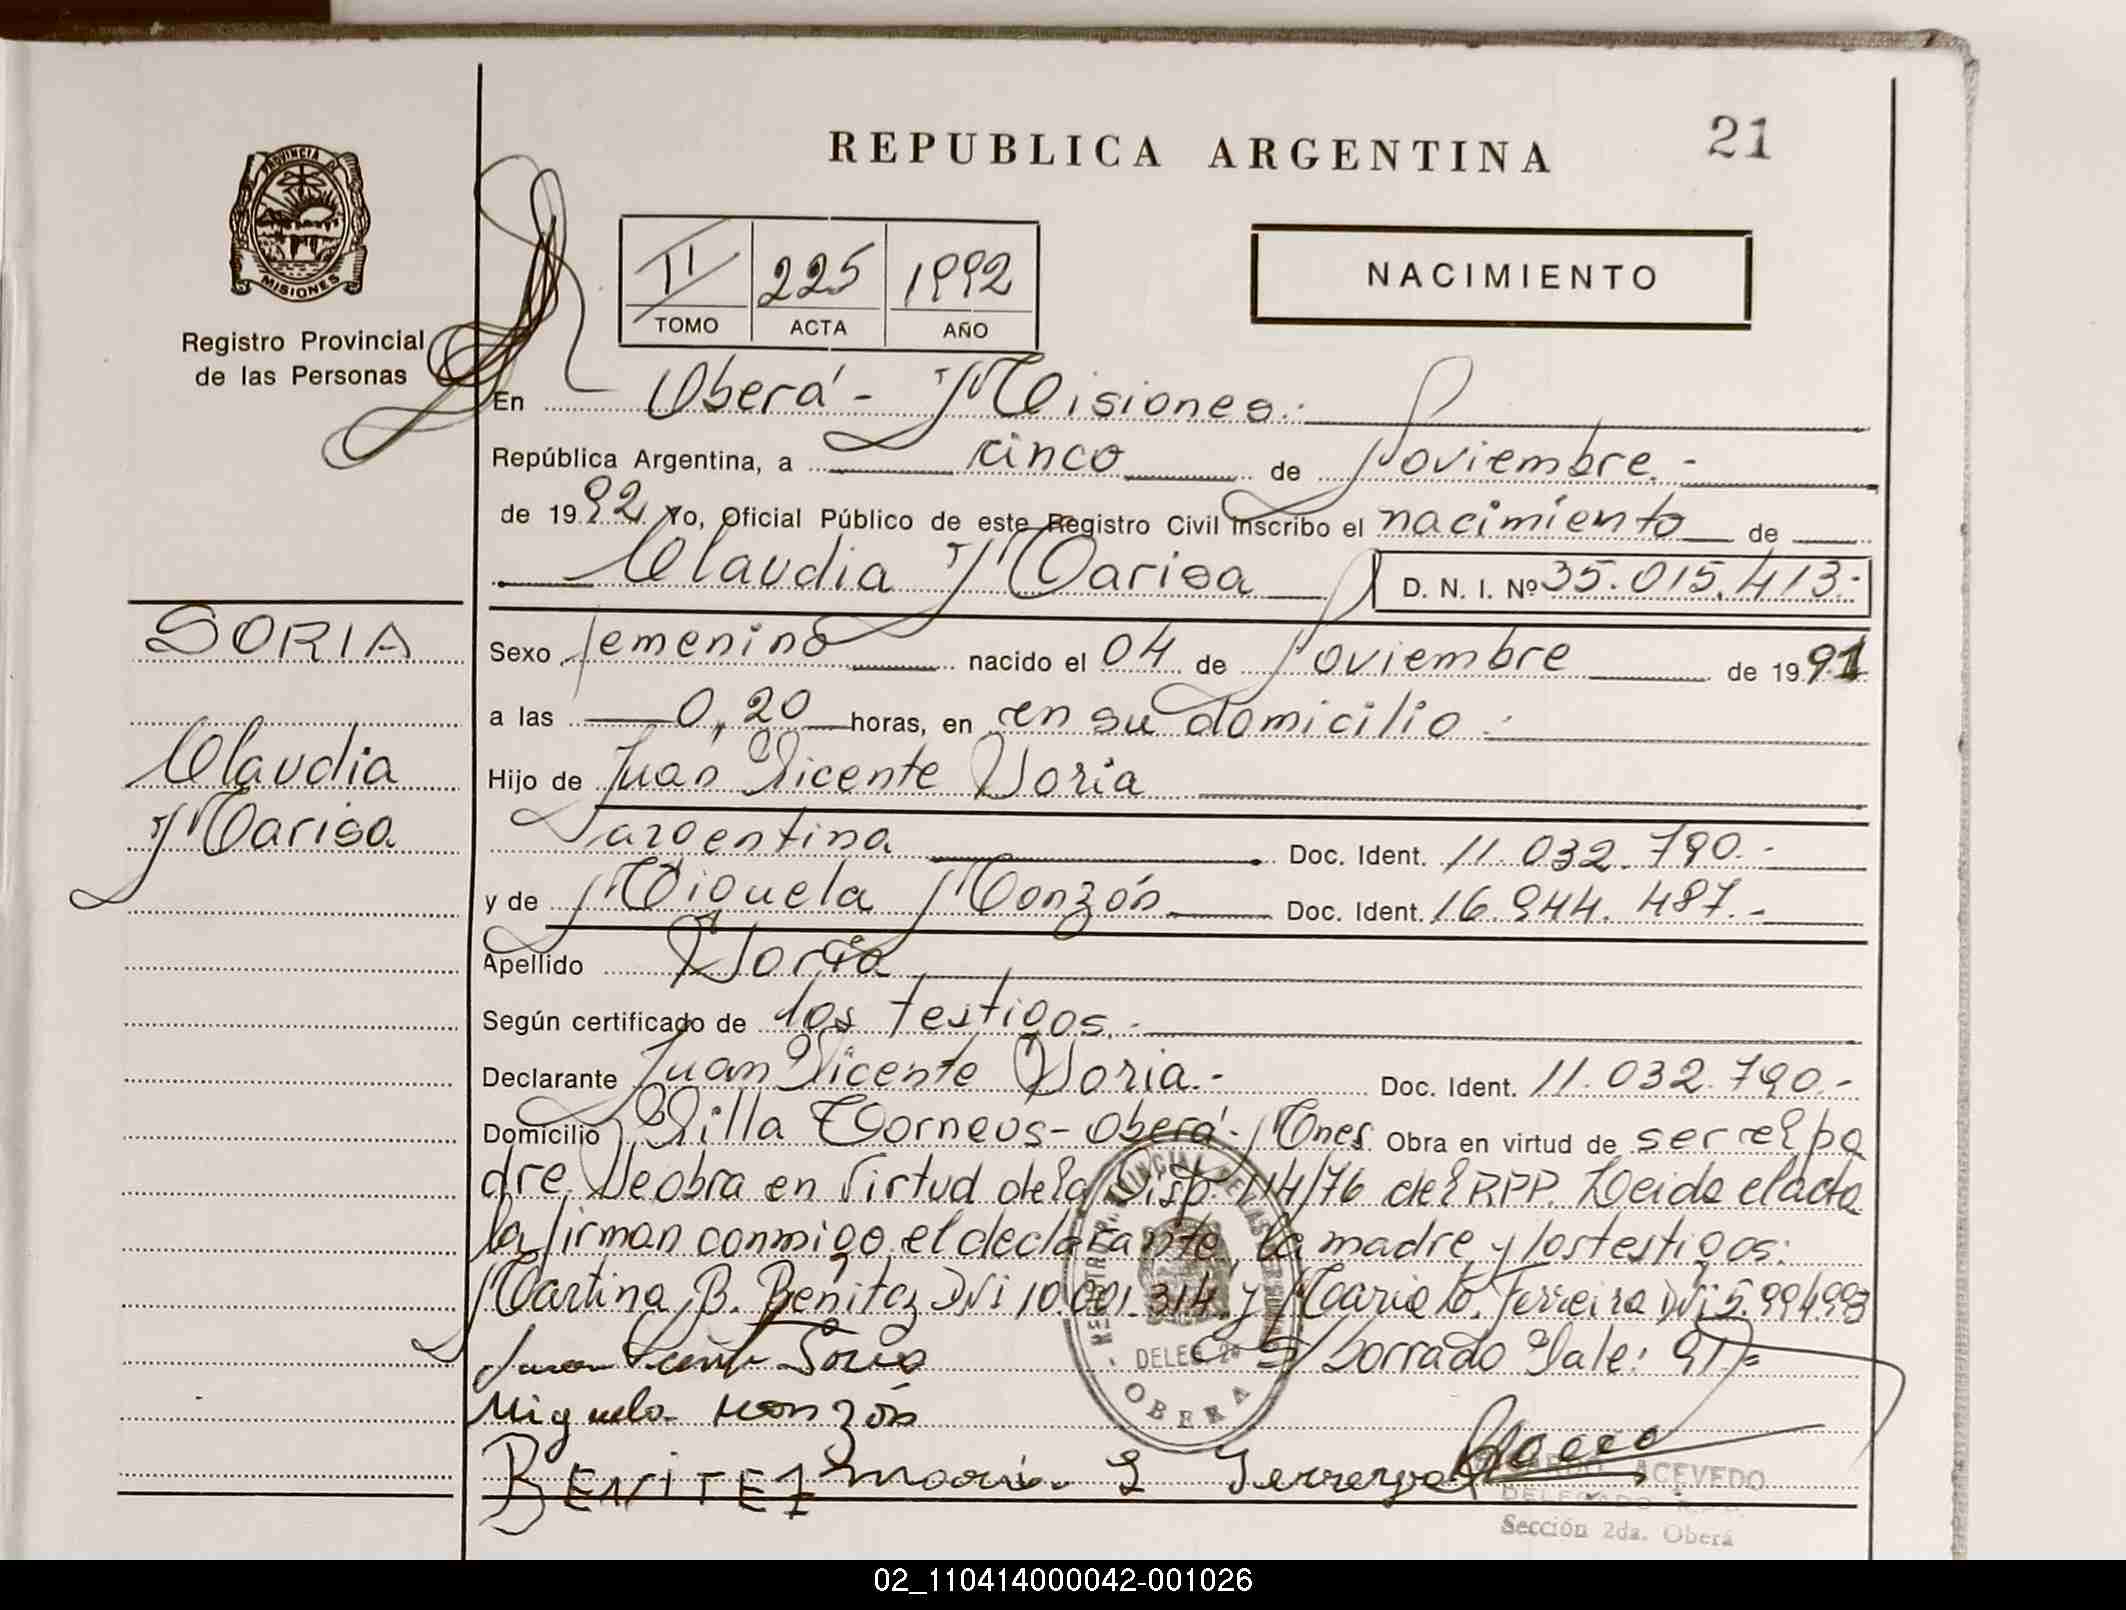 REPUBLICA ARGENTINA
21
PROVINCIA DE
MISIONES
Registro Provincial
de las Personas
II 225 1992
TOMO ACTA AÑO
NACIMIENTO
En Oberá - Misiones.
República Argentina, a cinco de Noviembre.-
de 1992 Yo, Oficial Público de este Registro Civil inscribo el nacimiento de
Claudia Marisa D. N. I. Nº 35.015.413.-
SORIA
Claudia
Marisa
Sexo femenino nacido el 04 de Noviembre de 1991
a las 0,20 horas, en en su domicilio.
Hijo de Juan Vicente Soria
argentina Doc. Ident. 11.032.790.-
y de Miguela Monzón Doc. Ident. 16.944.487.-
Apellido Soria
Según certificado de los testigos.-
Declarante Juan Vicente Soria.- Doc. Ident. 11.032.790.-
Domicilio Villa Torneus - Oberá - Mnes. Obra en virtud de ser el pa
dre. Se obra en Virtud de la Disp. 114/76 del RPP. Leida el acta
la firman conmigo, el declarante, la madre y los testigos:
Martina B. Benitez DNi 10.001.314 y Maria L. Ferreira DNi 5.994.993
Juan Vicente Soria S/borrado Vale: 91=
Miguela Monzón
BENITEZ Maria L Ferreyra
REGISTRO PROVINCIAL DE LAS PERSONAS
DELEG. 2ª
OBERA
ACEVEDO
DELEGADO R.P.P.
Sección 2da. Oberá
02_110414000042-001026